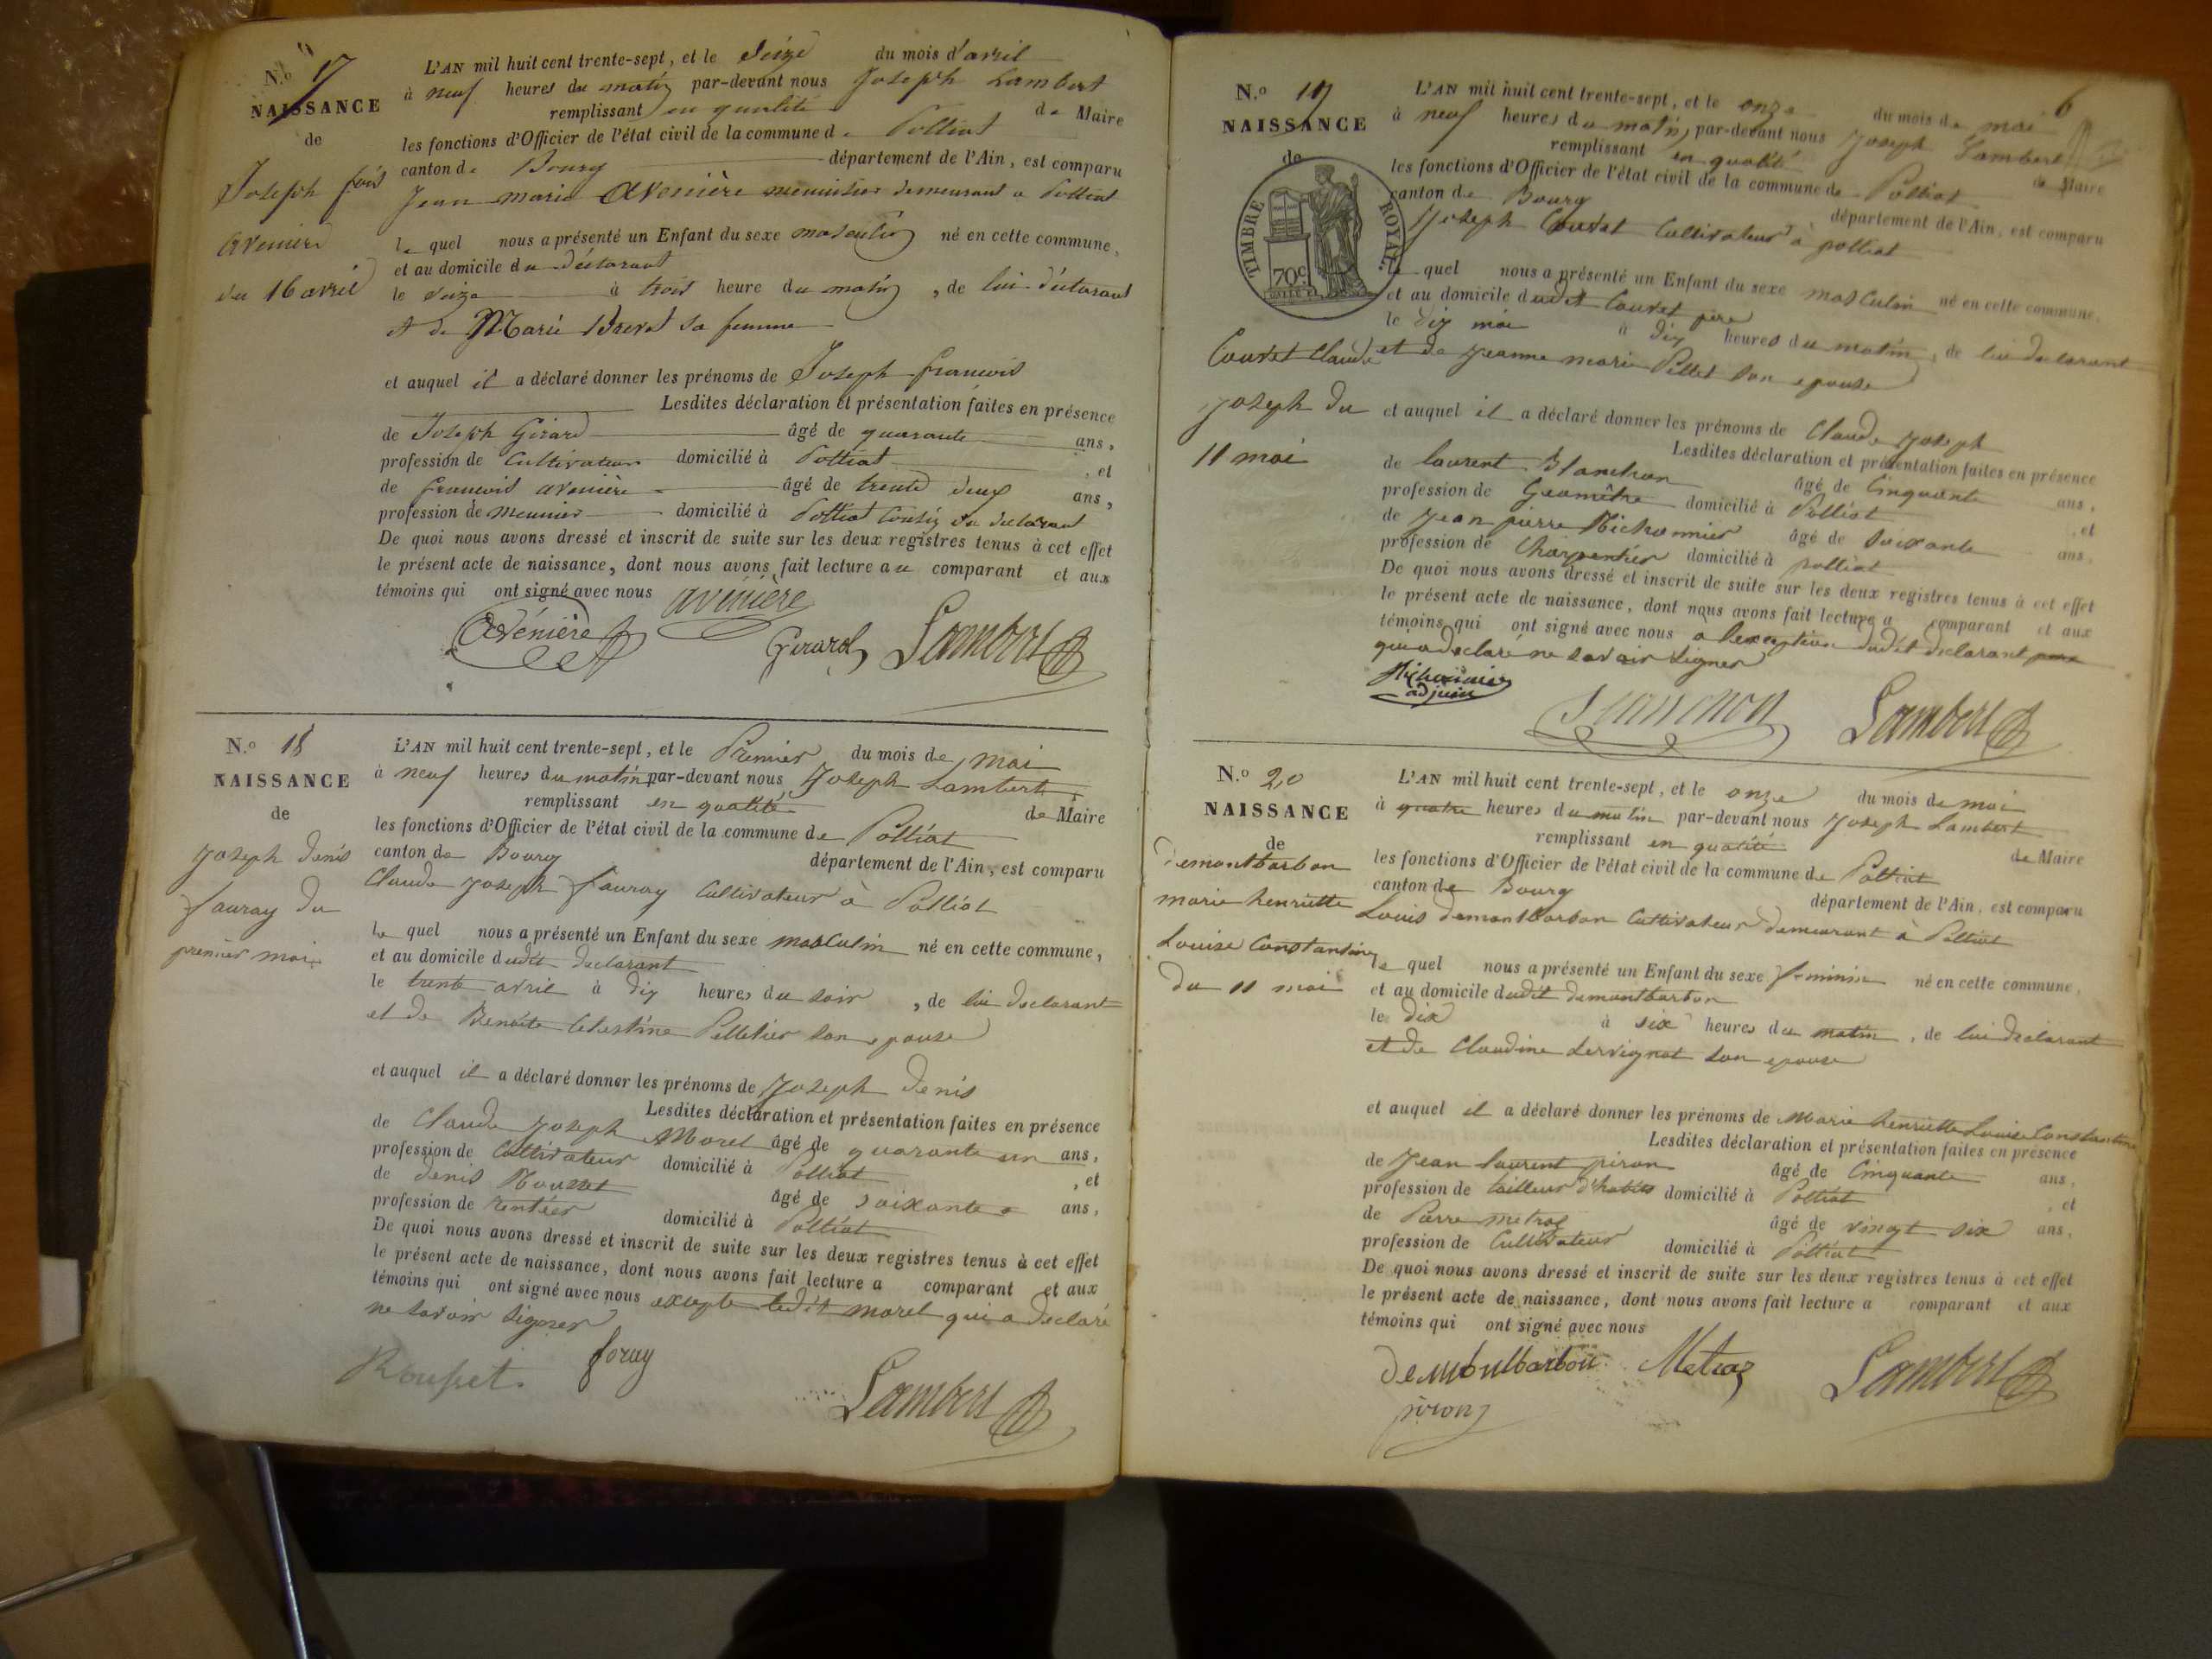 N.o 17
NAISSANCE
de
Joseph fois
avenière
du 16 avril
L'AN mil huit cent trente-sept, et le Seize du mois d'avril
à neuf heures du matin par-devant nous Joseph Lambert
remplissant en qualité de Maire
les fonctions d'Officier de l'état civil de la commune de Polliat
canton de Bourg département de l'Ain, est comparu
Jean marie avenière menuisier demeurant a Polliat
le quel nous a présenté un Enfant du sexe masculin né en cette commune,
et au domicile du déclarant
le seize à trois heure du matin, de lui déclarant
et de Marie Brevet sa femme
et auquel il a déclaré donner les prénoms de Joseph françois
Lesdites déclaration et présentation faites en présence
de Joseph Girard âgé de quarante ans,
profession de Cultivateur domicilié à Polliat, et
de françois avenière âgé de trente deux ans,
profession de meunier domicilié à Polliat Cousin du déclarant
De quoi nous avons dressé et inscrit de suite sur les deux registres tenus à cet effet
le présent acte de naissance, dont nous avons fait lecture au comparant et aux
témoins qui ont signé avec nous avinière
avénière Girard Lambert
N.o 18
NAISSANCE
de
Joseph Denis
fauray du
premier mai
L'AN mil huit cent trente-sept, et le Premier du mois de mai
à neuf heures du matin par-devant nous Joseph Lambert
remplissant en qualité de Maire
les fonctions d'Officier de l'état civil de la commune de Polliat
canton de Bourg département de l'Ain, est comparu
Claude Joseph fauray Cultivateur à Polliat
le quel nous a présenté un Enfant du sexe masculin né en cette commune,
et au domicile dudit declarant
le trente avril à dix heures du soir, de lui declarant
et de Benoite Celestine Pelletier son epouse
et auquel il a déclaré donner les prénoms de Joseph Denis
Lesdites déclaration et présentation faites en présence
de Claude Joseph Morel âgé de quarante un ans,
profession de Cultivateur domicilié à Polliat, et
de Denis Rousset âgé de soixante ans,
profession de rentier domicilié à Polliat
De quoi nous avons dressé et inscrit de suite sur les deux registres tenus à cet effet
le présent acte de naissance, dont nous avons fait lecture a comparant et aux
témoins qui ont signé avec nous excepte ledit morel qui a declaré
ne savoir signer
Rousset foray
Lambert
6
N.o 19
NAISSANCE
de
TIMBRE ROYAL.
70c
Couvet Claude
Joseph du
11 mai
L'AN mil huit cent trente-sept, et le onze du mois de mai
à neuf heures du matin par-devant nous Joseph Lambert
remplissant en qualité de Maire
les fonctions d'Officier de l'état civil de la commune de Polliat
canton de Bourg département de l'Ain, est comparu
Joseph Couvet Cultivateur à polliat
le quel nous a présenté un Enfant du sexe masculin né en cette commune,
et au domicile dudit Couvet père
le dix mai à dix heures du matin, de lui declarant
et de Jeanne marie Pellet son epouse
et auquel il a déclaré donner les prénoms de Claude Joseph
Lesdites déclaration et présentation faites en présence
de laurent Blanchon âgé de Cinquante ans,
profession de Geomêtre domicilié à Polliat, et
de Jean pierre Michonnier âgé de soixante ans,
profession de Charpentier domicilié à polliat
De quoi nous avons dressé et inscrit de suite sur les deux registres tenus à cet effet
le présent acte de naissance, dont nous avons fait lecture a comparant et aux
témoins qui ont signé avec nous a l'exception dudit declarant
qui a declaré ne savoir signer
Michonnier
adjoint
Lambert
N.o 20
NAISSANCE
de
Demontbarbon
marie henriette
Louise Constantine
du 11 mai
L'AN mil huit cent trente-sept, et le onze du mois de mai
à quatre heures du matin par-devant nous Joseph Lambert
remplissant en qualité de Maire
les fonctions d'Officier de l'état civil de la commune de Polliat
canton de Bourg département de l'Ain, est comparu
Louis demontbarbon Cultivateur demeurant à Polliat
le quel nous a présenté un Enfant du sexe feminin né en cette commune,
et au domicile dudit demontbarbon
le dix à six heures du matin, de lui declarant
et de Claudine servignat son epouse
et auquel il a déclaré donner les prénoms de Marie henriette Louise Constantine
Lesdites déclaration et présentation faites en présence
de Jean laurent piron âgé de Cinquante ans,
profession de tailleur d'habits domicilié à Polliat, et
de Pierre metraz âgé de vingt six ans,
profession de Cultivateur domicilié à Polliat
De quoi nous avons dressé et inscrit de suite sur les deux registres tenus à cet effet
le présent acte de naissance, dont nous avons fait lecture a comparant et aux
témoins qui ont signé avec nous
Demontbarbon Metraz Lambert
piron